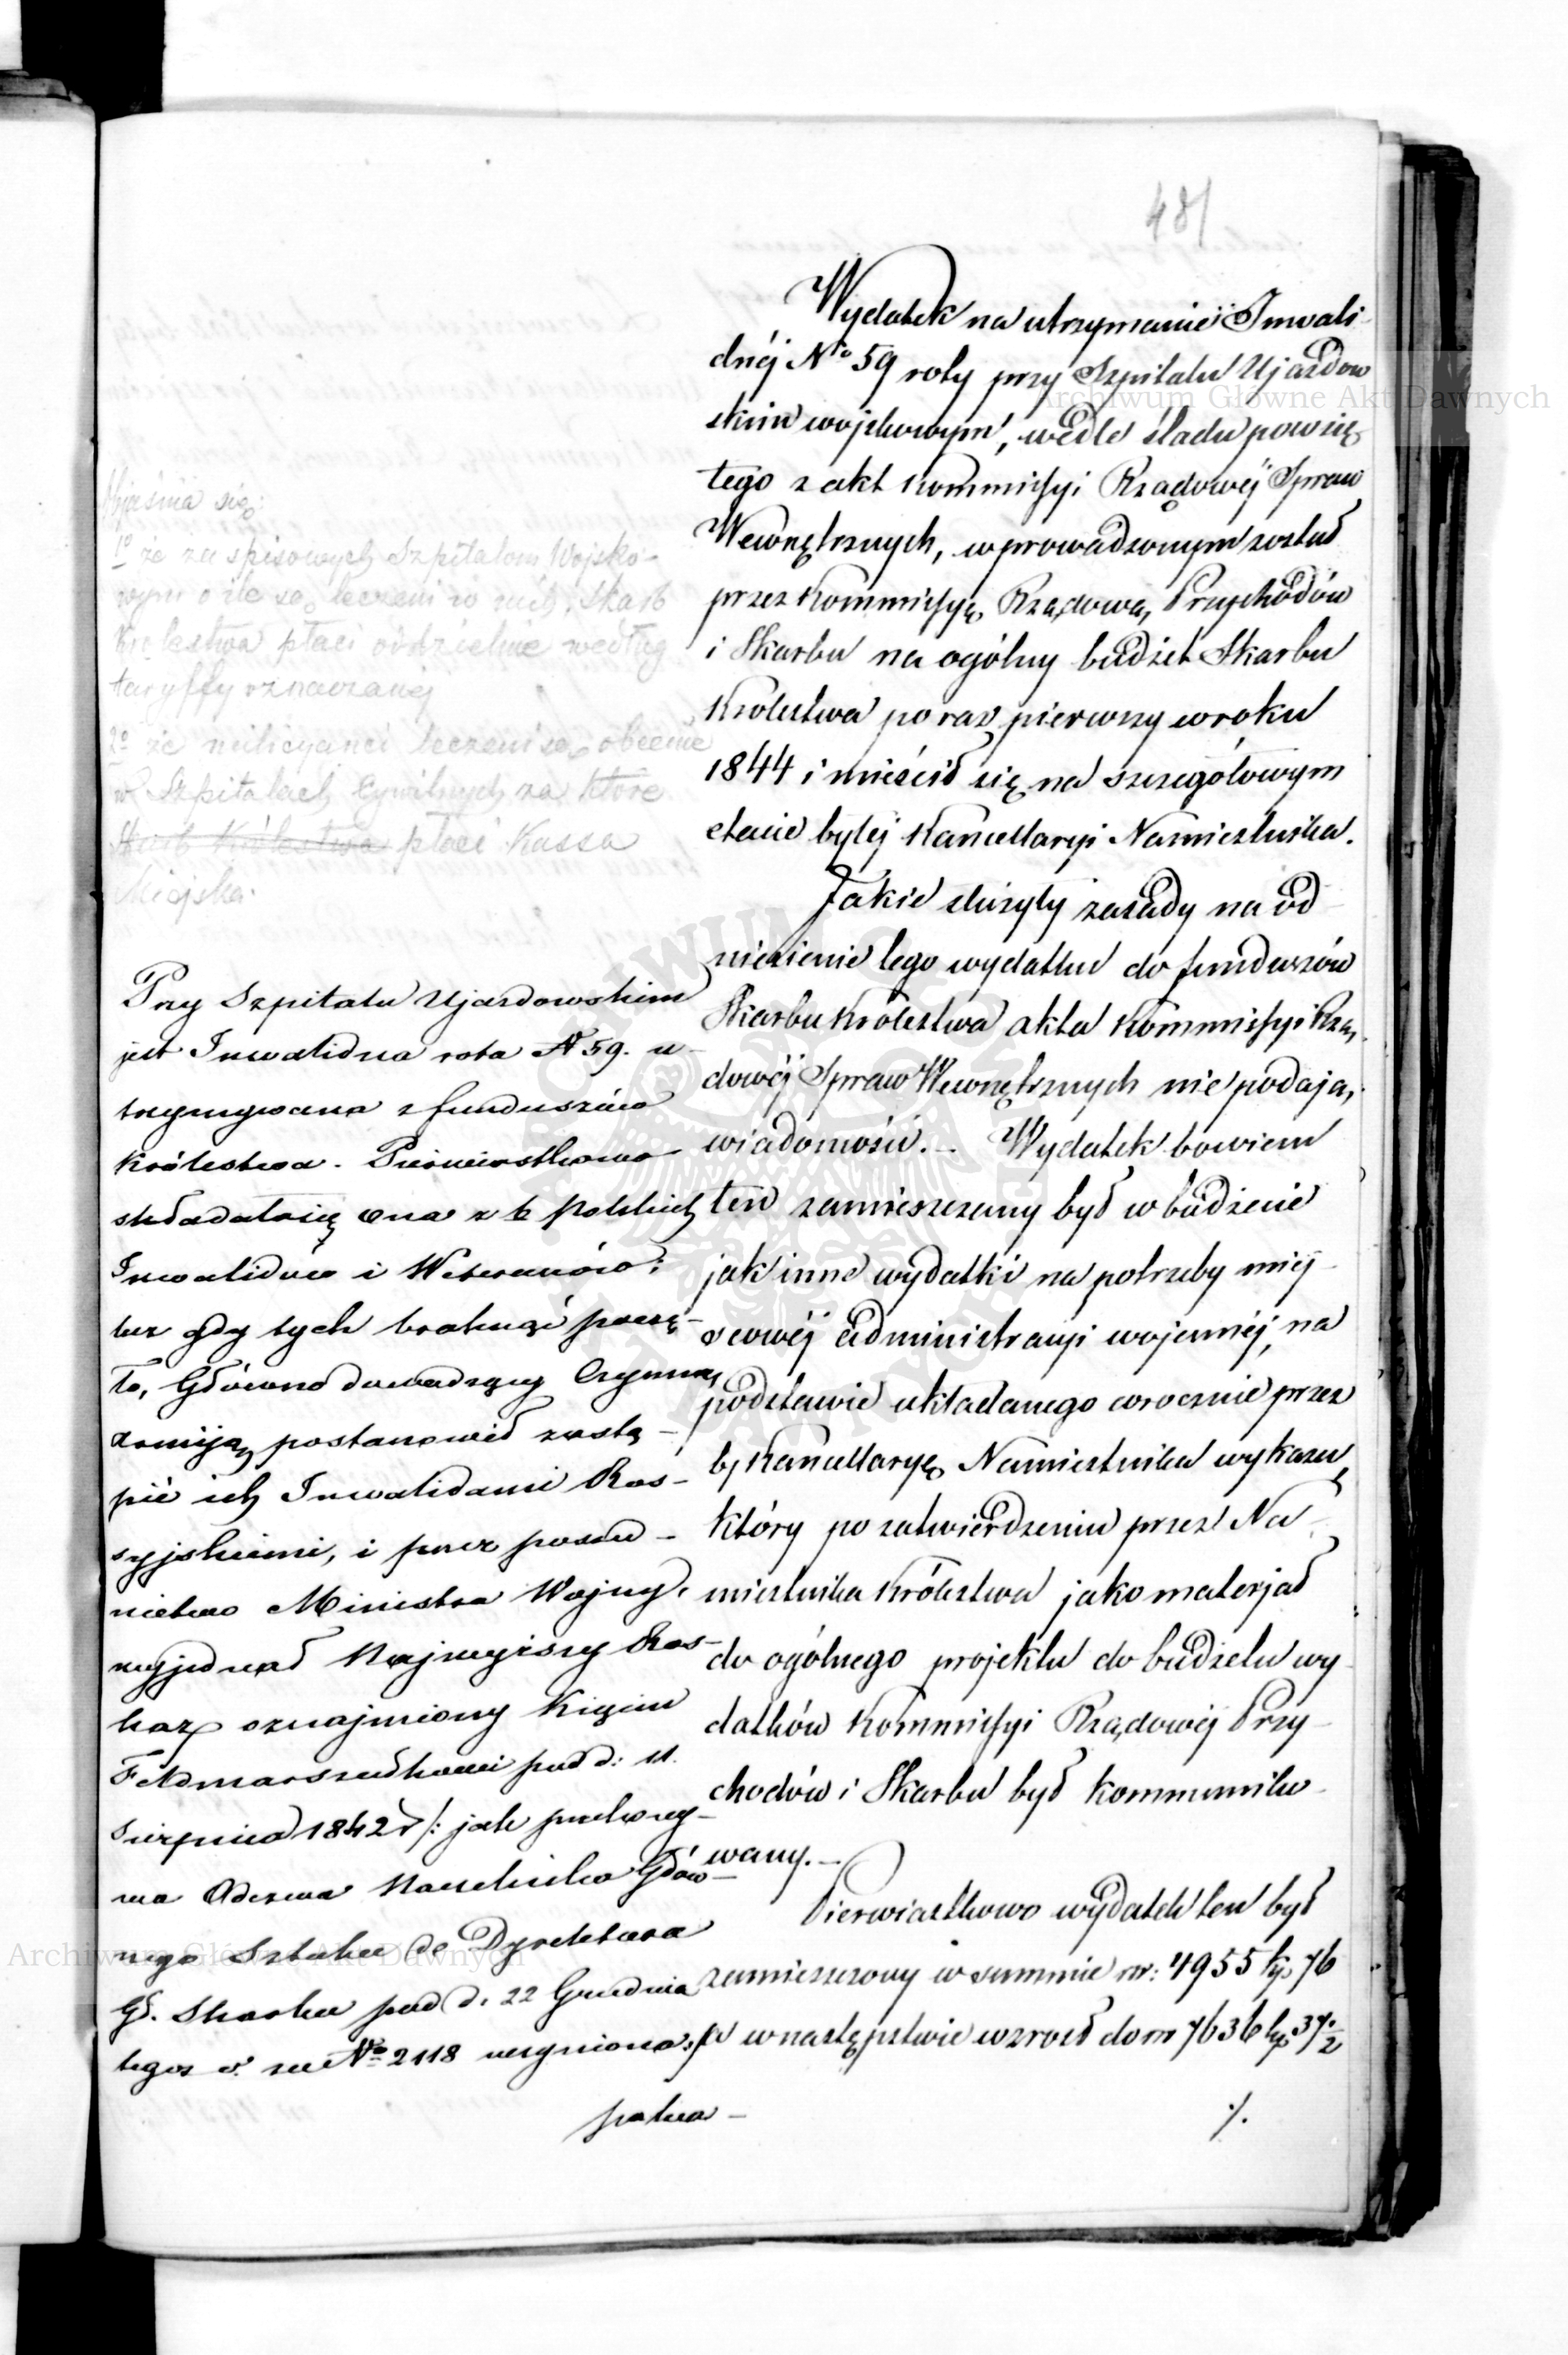 481
Wydatek na utrzymanie Inwali-
dnéj No 59 roty przy Szpitalu Ujazdow
skim wojskowym, wedle śladu powzię
tego z akt Kommissyi Rządowéj Spraw
Wewnętrznych, wprowadzonym został
przez Kommissyę Rządową Przychodów
i Skarbu na ogólny budżet Skarbu
Królestwa po raz pierwszy w roku
1844 i mieścił się na szczegółowym
etacie byłéj Kancellaryi Namiestnika.
Jakie służyły zasady na od-
niesienie tego wydatku do funduszów
Skarbu Królestwa akta Kommissyi Rzą-
dowéj Spraw Wewnętrznych nie podają
wiadomości. — Wydatek bowiem
ten zamieszczany był w budżecie
jak inne wydatki na potrzeby miej-
scowéj administracyi wojennéj, na
podstawie układanego corocznie przez
b. Kancellaryę Namiestnika wykazu,
który po zatwierdzeniu przez Na-
miestnika Królestwa jako materjał
do ogólnego projektu do budżetu wy-
datków Kommissyi Rządowéj Przy-
chodów i Skarbu był kommuniko-
wany. —
Pierwiastkowo wydatek ten był
zamieszczony w summie rsr: 4955 kp 76
a w następstwie wzrosł do rsr 7636 kp 37½
./.
Objaśnia się:
1o że za spisowych Szpitalom Wojsko-
wym o ile są leczeni w nich Skarb
Królestwa płaci oddzielnie według
taryffy oznaczonej
2o że milicyanci leczeni są obecnie
w Szpitalach Cywilnych za które
Skarb Królestwa płaci Kassa
Miejska.
Przy Szpitalu Ujazdowskim
jest Inwalidna rota N 59. u-
trzymywana z funduszów
Królestwa. Pierwiastkowo
składała się ona z b Polskich
Inwalidów i Weteranów;
lecz gdy tych braknąć poczę-
ło, Głównodowodzący Czynną
Armiją, postanowił zastą-
pić ich Inwalidami Ros-
syjskiemi, i przez pośred-
nictwo Ministra Wojny,
wyjednał Najwyższy Roz-
kaz oznajmiony Xięciu
Feldmarszałkowi pod d: 11.
Sierpnia 1842 r /: jak przekony-
wa Odezwa Naczelnika Głów-
nego Sztabu do Dyrektora
Gł. Skarbu pod d. 22 Grudnia
tegoż r. za No 2118 uczyniona :/